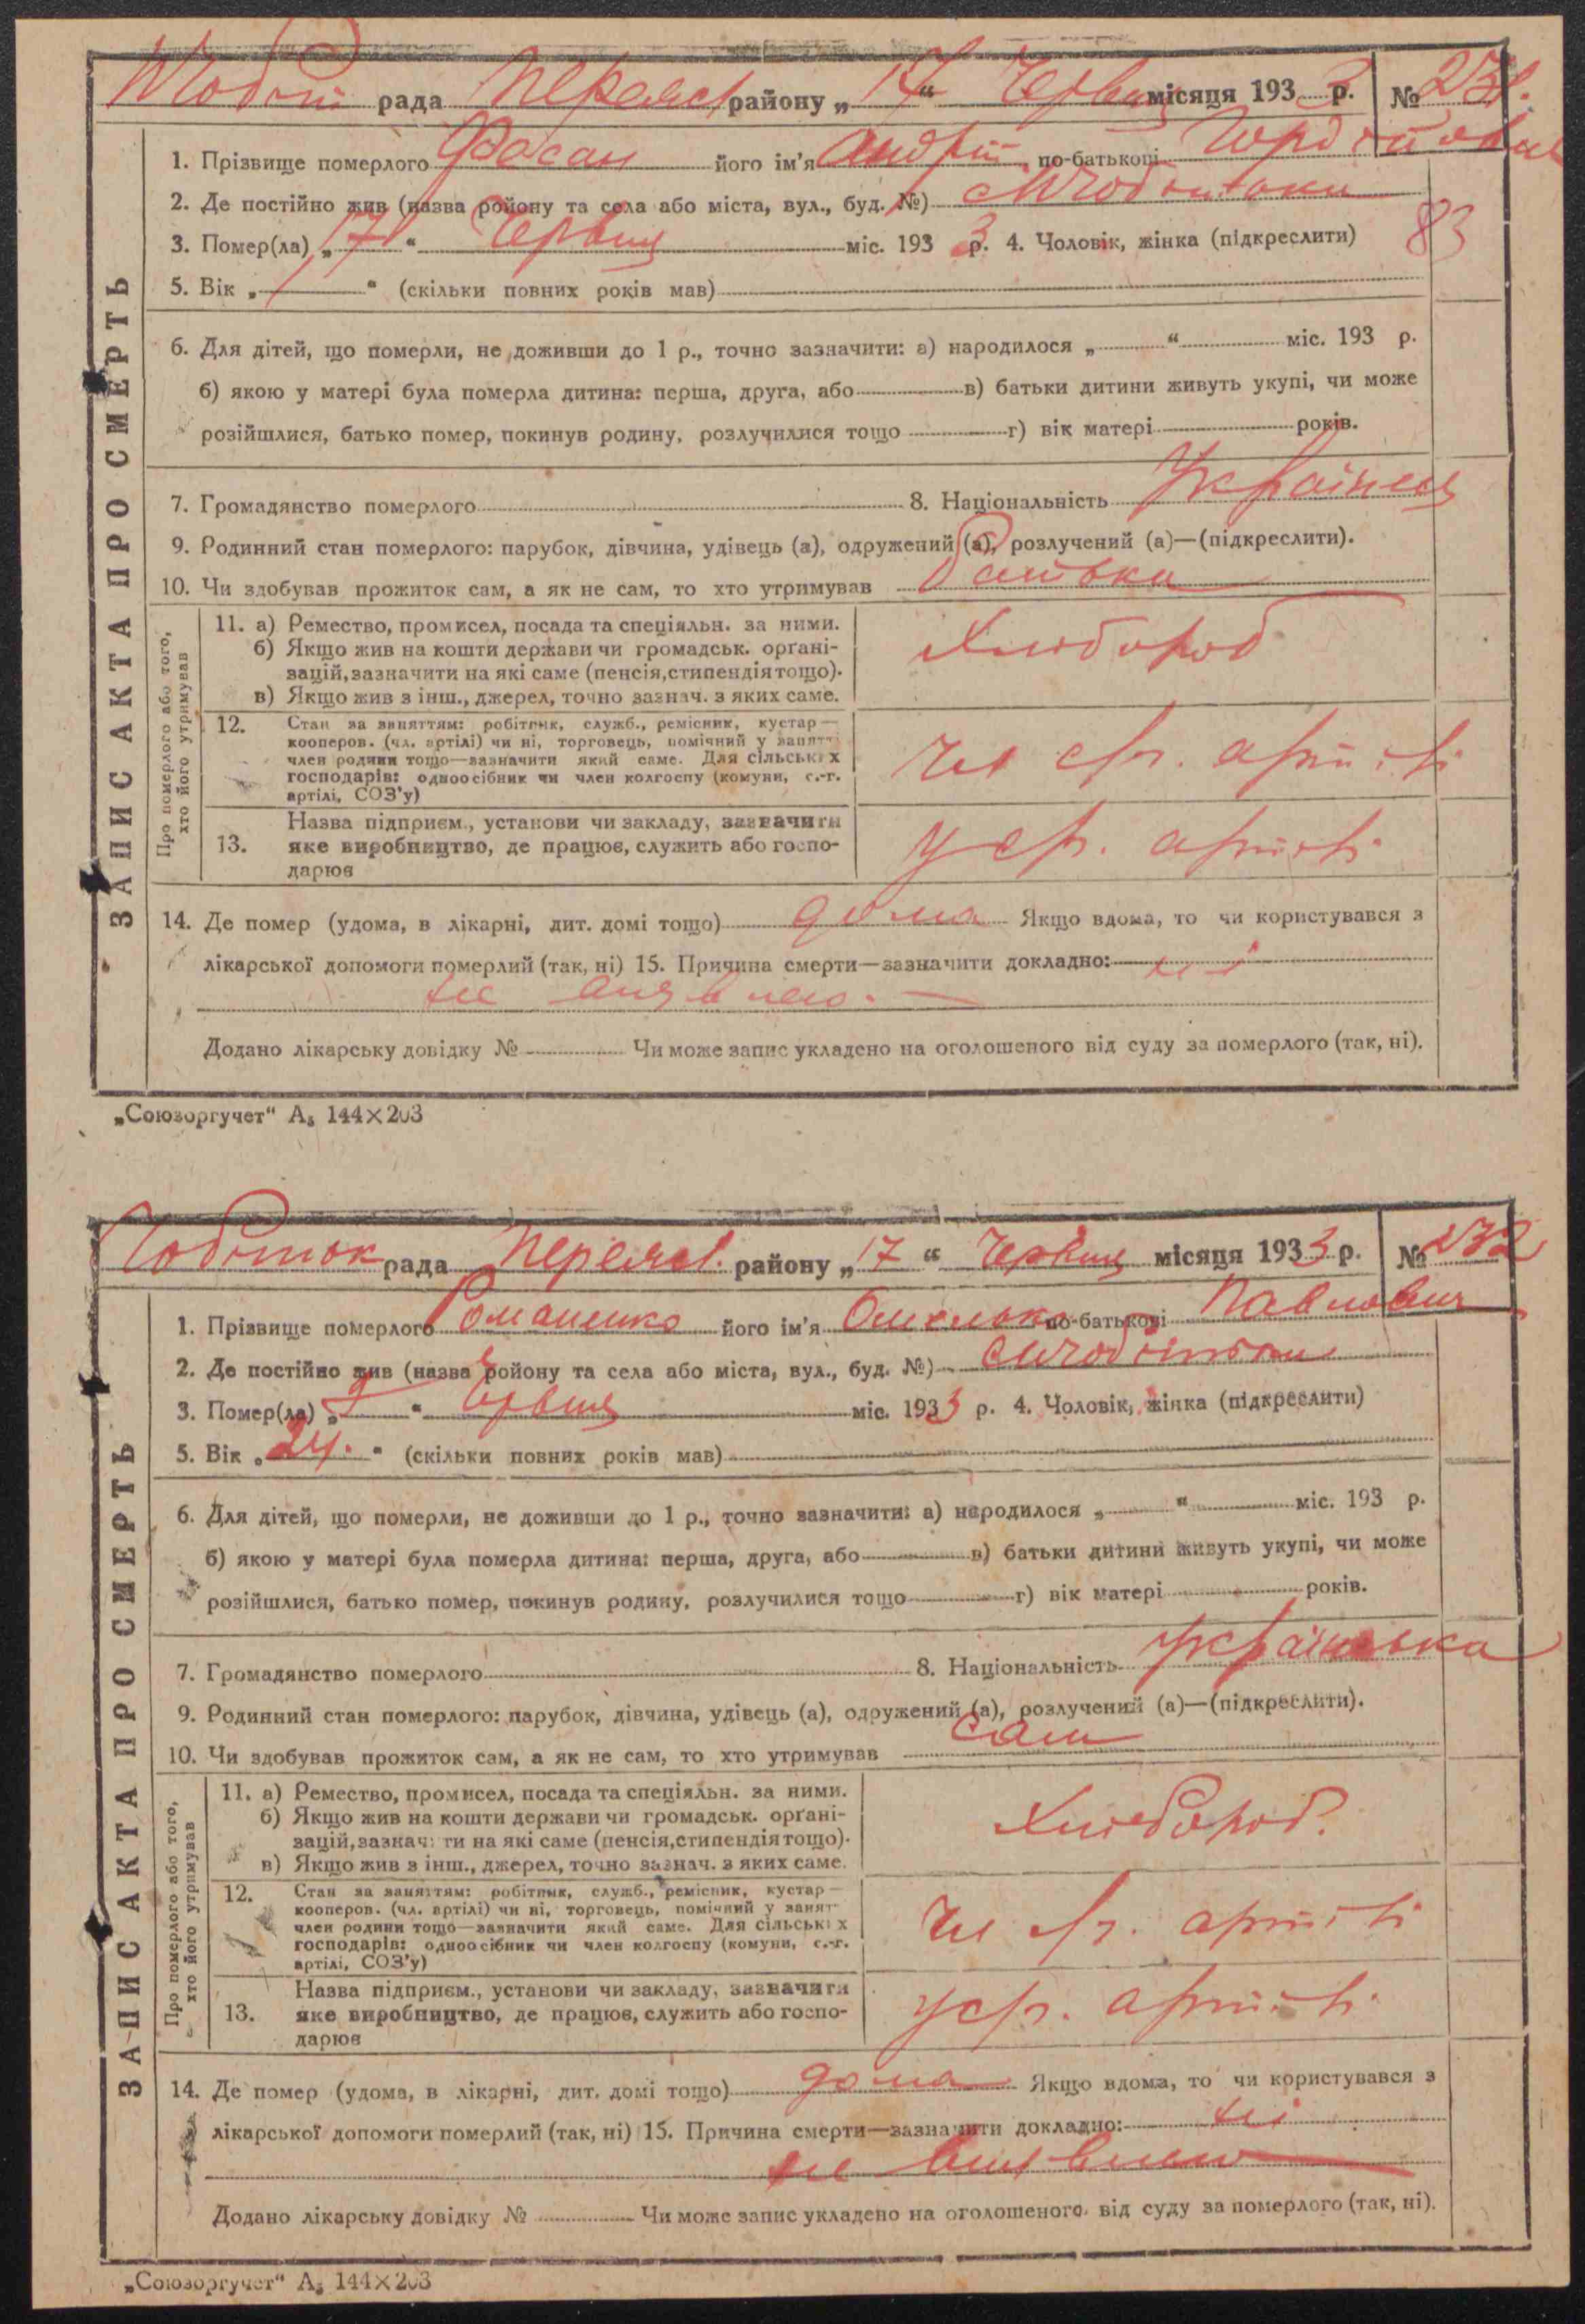 рада Переясл району „17“ Червня місяця 1933 р. № 231.
1. Прізвище померлого його ім'я Андрій по-батькові Гордійович
2. Де постійно жив (назва ройону та села або міста, вул., буд. №)
3. Помер(ла) „17“ Червня міс. 1933 р. 4. Чоловік, жінка (підкреслити) 83
5. Вік „ “ (скільки повних років мав)
6. Для дітей, що померли, не доживши до 1 р., точно зазначити: а) народилося „ “ міс. 193 р.
б) якою у матері була померла дитина: перша, друга, або в) батьки дитини живуть укупі, чи може
розійшлися, батько помер, покинув родину, розлучилися тощо г) вік матері років.
7. Громадянство померлого 8. Національність Українець
9. Родинний стан померлого: парубок, дівчина, удівець (а), одружений (а), розлучений (а)—(підкреслити).
10. Чи здобував прожиток сам, а як не сам, то хто утримував батьки
ЗАПИС АКТА ПРО СМЕРТЬ
Про померлого або того,
хто його утримував
11. а) Ремество, промисел, посада та спеціяльн. за ними.
б) Якщо жив на кошти держави чи громадськ. орґані-
зацій, зазначити на які саме (пенсія, стипендія тощо).
в) Якщо жив з інш., джерел, точно зазнач. з яких саме.
Хлібороб
12. Стан за заняттям: робітник, служб., ремісник, кустар—
кооперов. (чл. артілі) чи ні, торговець, помічний у занятт
член родини тощо—зазначити який саме. Для сільських
господарів: одноосібник чи член колгоспу (комуни, с.-г.
артілі, СОЗ'у)
Чл с/г. артілі
13. Назва підприєм., установи чи закладу, зазначити
яке виробництво, де працює, служить або госпо-
дарює
у с/г. артілі
14. Де помер (удома, в лікарні, дит. домі тощо) дома Якщо вдома, то чи користувався з
лікарської допомоги померлий (так, ні) 15. Причина смерти—зазначити докладно: ні
не
Додано лікарську довідку № Чи може запис укладено на оголошеного від суду за померлого (так, ні).
„Союзоргучет“ А₅ 144×203
рада Переясл. району „17“ Червня місяця 1933 р. № 232
1. Прізвище померлого Романенко його ім'я Омелько по-батькові Павлович
2. Де постійно жив (назва ройону та села або міста, вул., буд. №)
3. Помер(ла) „ “ Червня міс. 1933 р. 4. Чоловік, жінка (підкреслити)
5. Вік „24.“ (скільки повних років мав)
6. Для дітей, що померли, не доживши до 1 р., точно зазначити: а) народилося „ “ міс. 193 р.
б) якою у матері була померла дитина: перша, друга, або в) батьки дитини живуть укупі, чи може
розійшлися, батько помер, покинув родину, розлучилися тощо г) вік матері років.
7. Громадянство померлого 8. Національність Українська
9. Родинний стан померлого: парубок, дівчина, удівець (а), одружений (а), розлучений (а)—(підкреслити).
10. Чи здобував прожиток сам, а як не сам, то хто утримував сам
ЗАПИС АКТА ПРО СМЕРТЬ
Про померлого або того,
хто його утримував
11. а) Ремество, промисел, посада та спеціяльн. за ними.
б) Якщо жив на кошти держави чи громадськ. орґані-
зацій, зазначити на які саме (пенсія, стипендія тощо).
в) Якщо жив з інш., джерел, точно зазнач. з яких саме.
Хлібороб.
12. Стан за заняттям: робітник, служб., ремісник, кустар—
кооперов. (чл. артілі) чи ні, торговець, помічний у занят
член родини тощо—зазначити який саме. Для сільських
господарів: одноосібник чи член колгоспу (комуни, с.-г.
артілі, СОЗ'у)
Чл с/г. артілі
13. Назва підприєм., установи чи закладу, зазначити
яке виробництво, де працює, служить або госпо-
дарює
у с/г. артілі
14. Де помер (удома, в лікарні, дит. домі тощо) дома Якщо вдома, то чи користувався з
лікарської допомоги померлий (так, ні) 15. Причина смерти—зазначити докладно: ні
не
Додано лікарську довідку № Чи може запис укладено на оголошеного від суду за померлого (так, ні).
„Союзоргучет“ А₅ 144×203